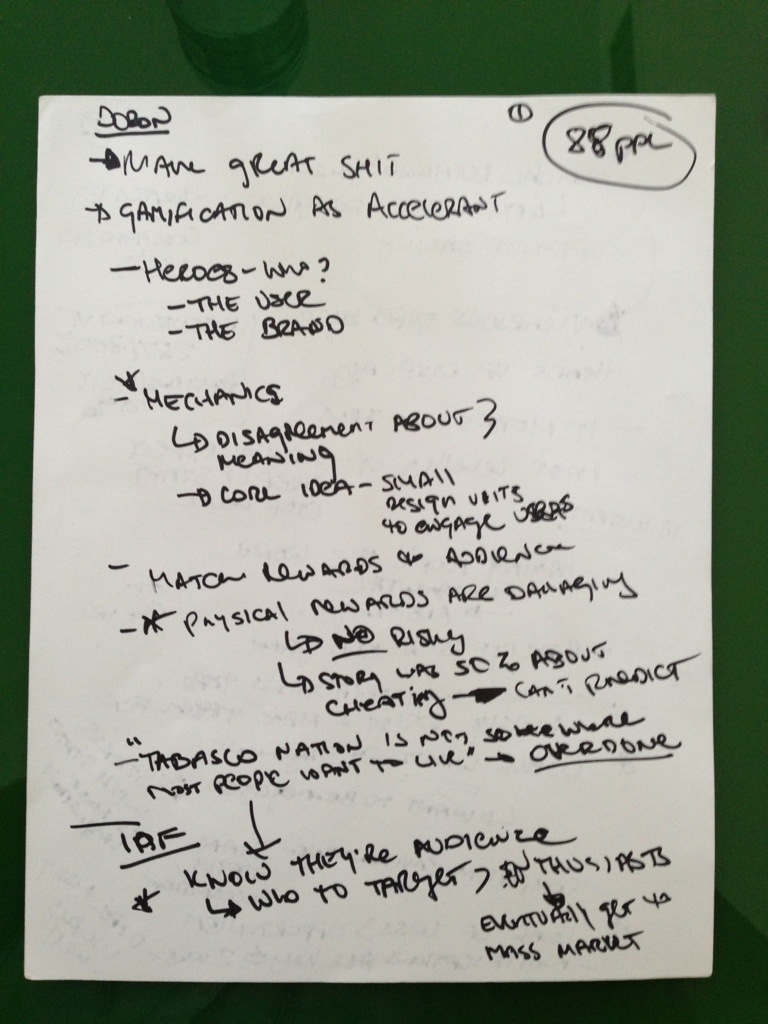 DORON
① 88 ppl
→ MAKE GREAT SHIT
→ GAMIFICATION AS ACCELERANT
— HEROES - WHO?
- THE USER
- THE BRAND
- MECHANICS
↳ DISAGREEMENT ABOUT }
MEANING
→ CORE IDEA - SMALL
DESIGN UNITS
to ENGAGE USERS
- MATCH REWARDS to AUDIENCE
- * PHYSICAL REWARDS ARE DAMAGING
↳ NO RISKY
↳ STORY WAS 50% ABOUT
CHEATING → CAN'T PREDICT
- "TABASCO NATION IS NOT SOMEWHERE
MOST PEOPLE WANT TO LIVE" → OVERDONE
IAF
* KNOW THEY'RE AUDIENCE
↳ WHO TO TARGET > ENTHUSIASTS
EVENTUALLY get to
MASS MARKET